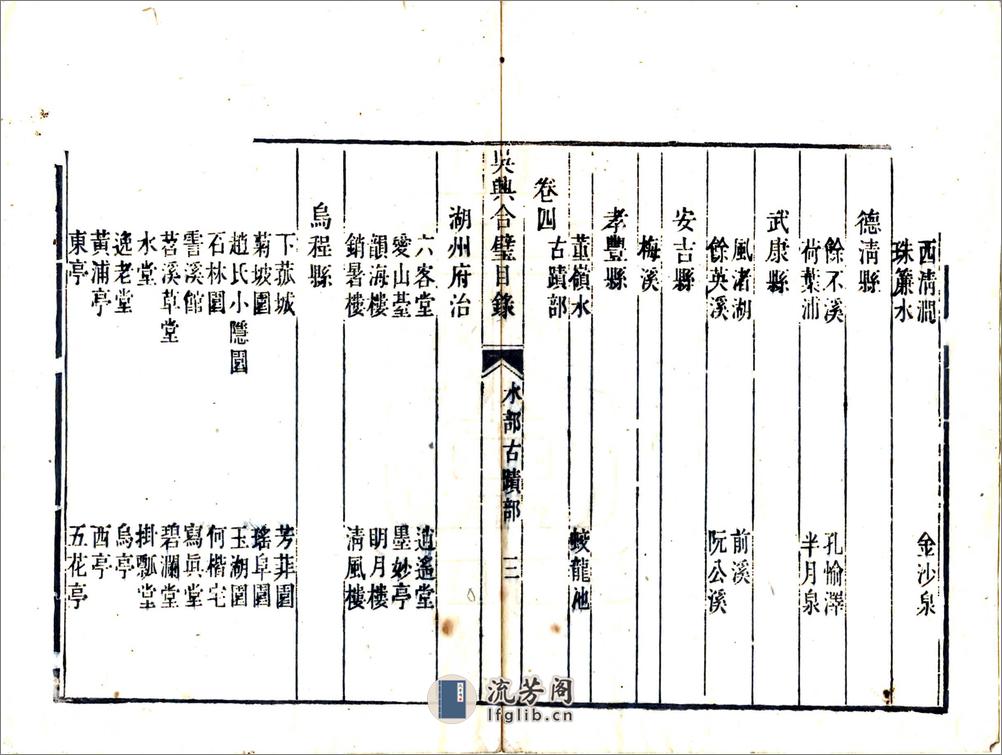 西清澗 金沙泉
珠簾水
德清縣
餘不溪 孔愉澤
荷葉浦 半月泉
武康縣
風渚湖 前溪
餘英溪 阮公溪
安吉縣
梅溪
孝豐縣
董嶺水 蛟龍池
卷四
古蹟部
吳興合璧目錄 水部古蹟部 三
湖州府治
六客堂 逍遙堂
愛山臺 墨妙亭
韻海樓 明月樓
銷暑樓 清風樓
烏程縣
下菰城 芳菲園
菊坡園 瑤阜園
趙氏小隱園 玉湖園
石林園 何楷宅
霅溪館 寫眞堂
苕溪草堂 碧瀾堂
水堂 掛瓢堂
逸老堂 烏亭
黃浦亭 西亭
東亭 五花亭
流芳阁
lfglib.cn